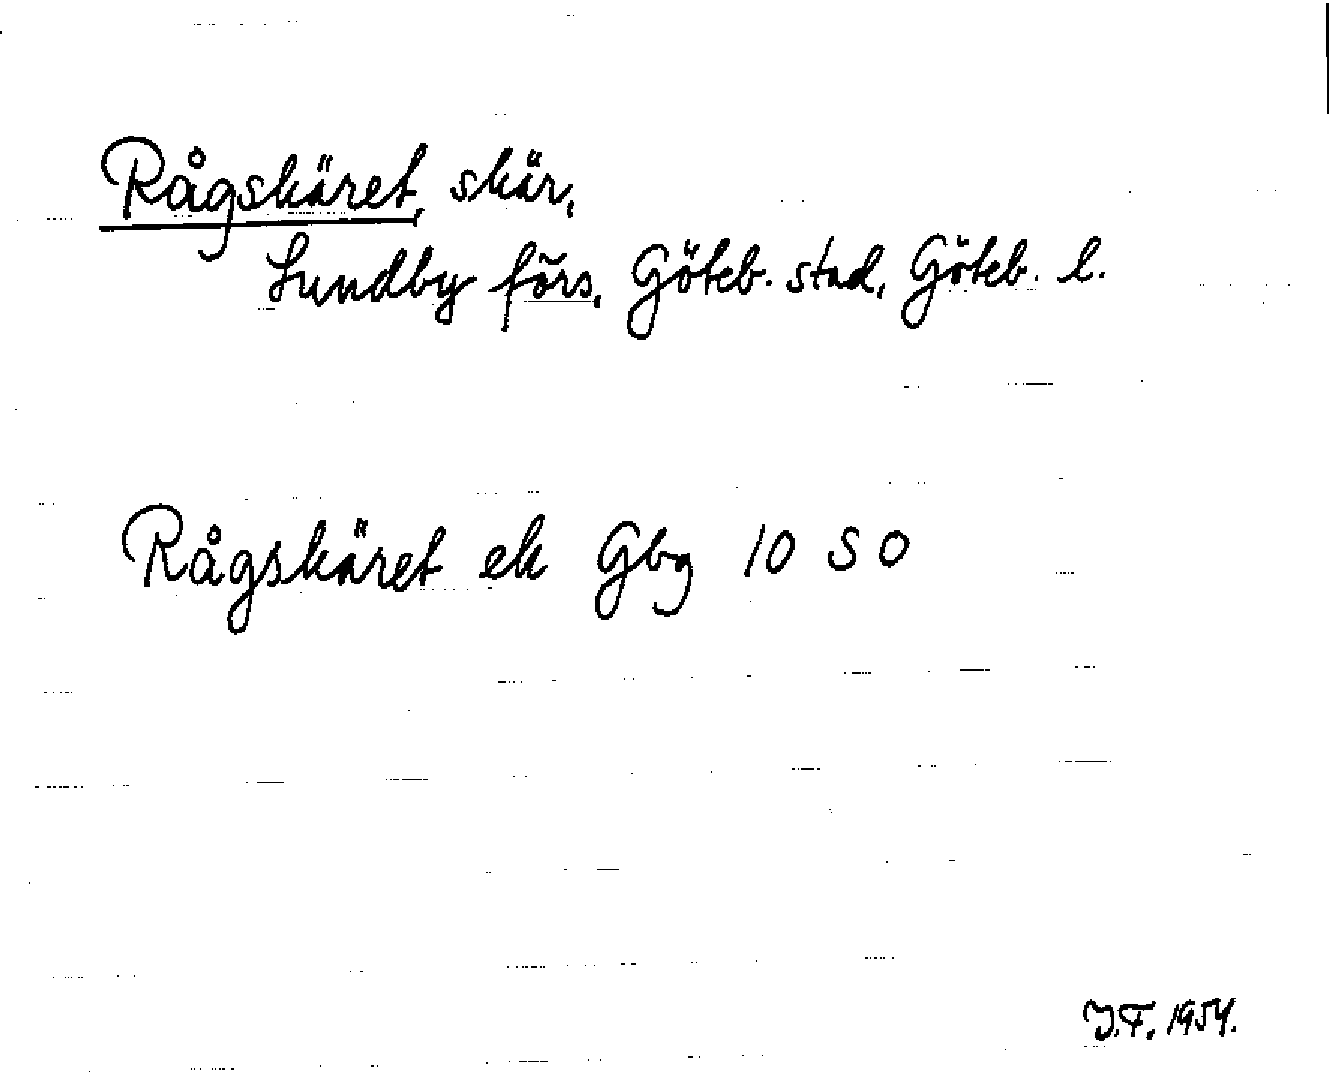 Rågskäret, skär,
Lundby förs, Göteb. stad, Göteb. l.
Rågskäret ek Gbg 10 SO
J.F. 1954.